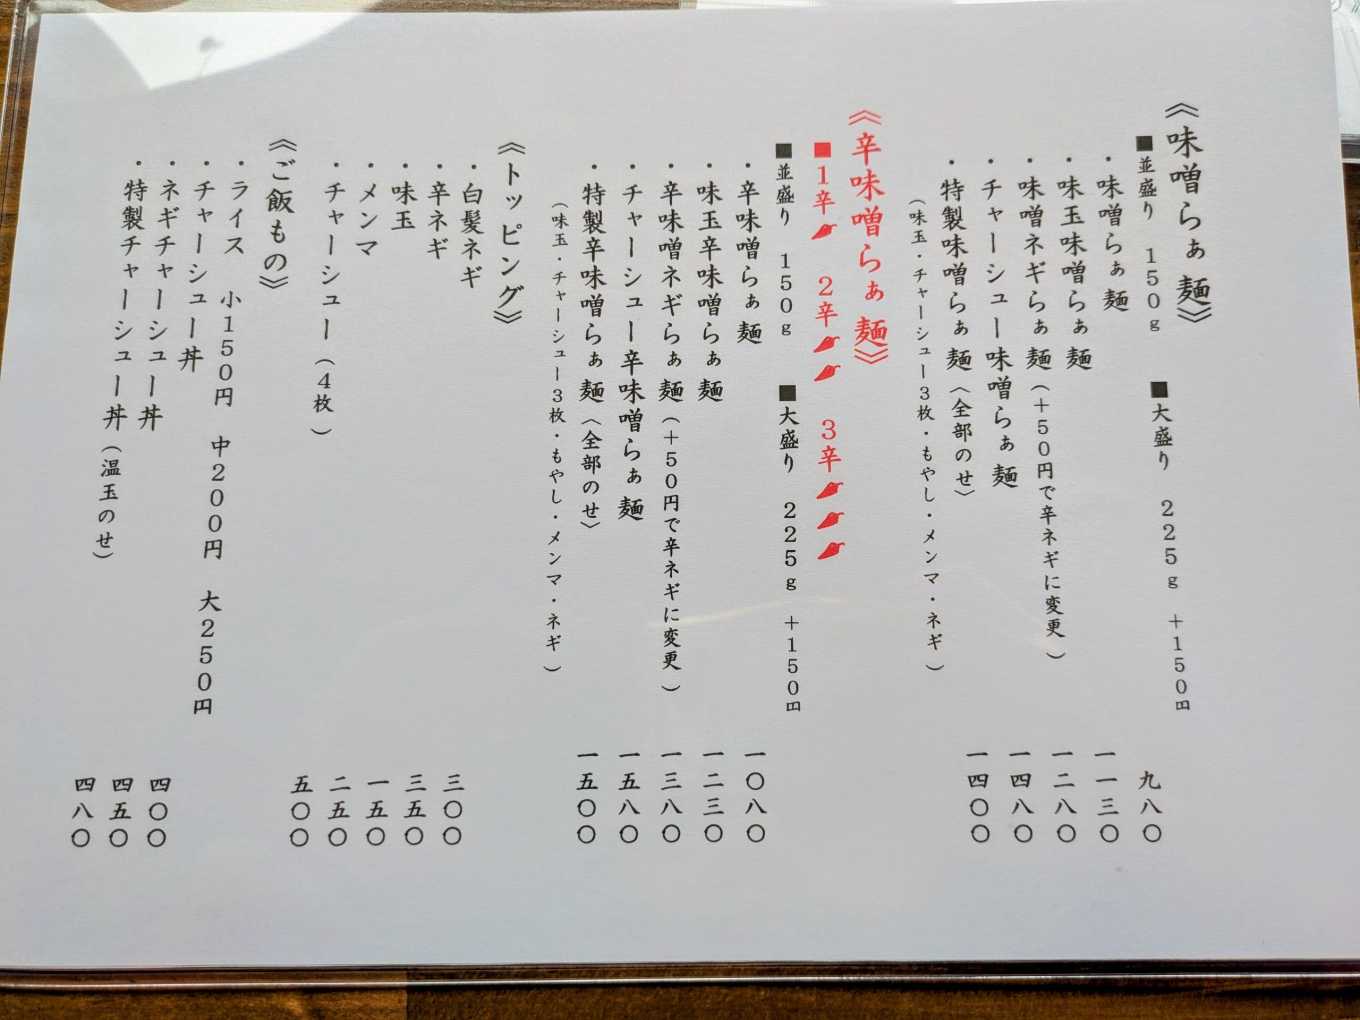 《味噌らぁ麺》
■並盛り 150g ■大盛り 225g +150円
・味噌らぁ麺 九八〇
・味玉味噌らぁ麺 一一三〇
・味噌ネギらぁ麺(+50円で辛ネギに変更) 一二八〇
・チャーシュー味噌らぁ麺 一四八〇
・特製味噌らぁ麺〈全部のせ〉 一四〇〇
(味玉・チャーシュー3枚・もやし・メンマ・ネギ)
《辛味噌らぁ麺》
■1辛 2辛 3辛
■並盛り 150g ■大盛り 225g +150円
・辛味噌らぁ麺 一〇八〇
・味玉辛味噌らぁ麺 一二三〇
・辛味噌ネギらぁ麺(+50円で辛ネギに変更) 一三八〇
・チャーシュー辛味噌らぁ麺 一五八〇
・特製辛味噌らぁ麺〈全部のせ〉 一五〇〇
(味玉・チャーシュー3枚・もやし・メンマ・ネギ)
《トッピング》
・白髪ネギ 三〇〇
・辛ネギ 三五〇
・味玉 一五〇
・メンマ 二五〇
・チャーシュー(4枚) 五〇〇
《ご飯もの》
・ライス 小150円 中200円 大250円
・チャーシュー丼 四〇〇
・ネギチャーシュー丼 四五〇
・特製チャーシュー丼(温玉のせ) 四八〇